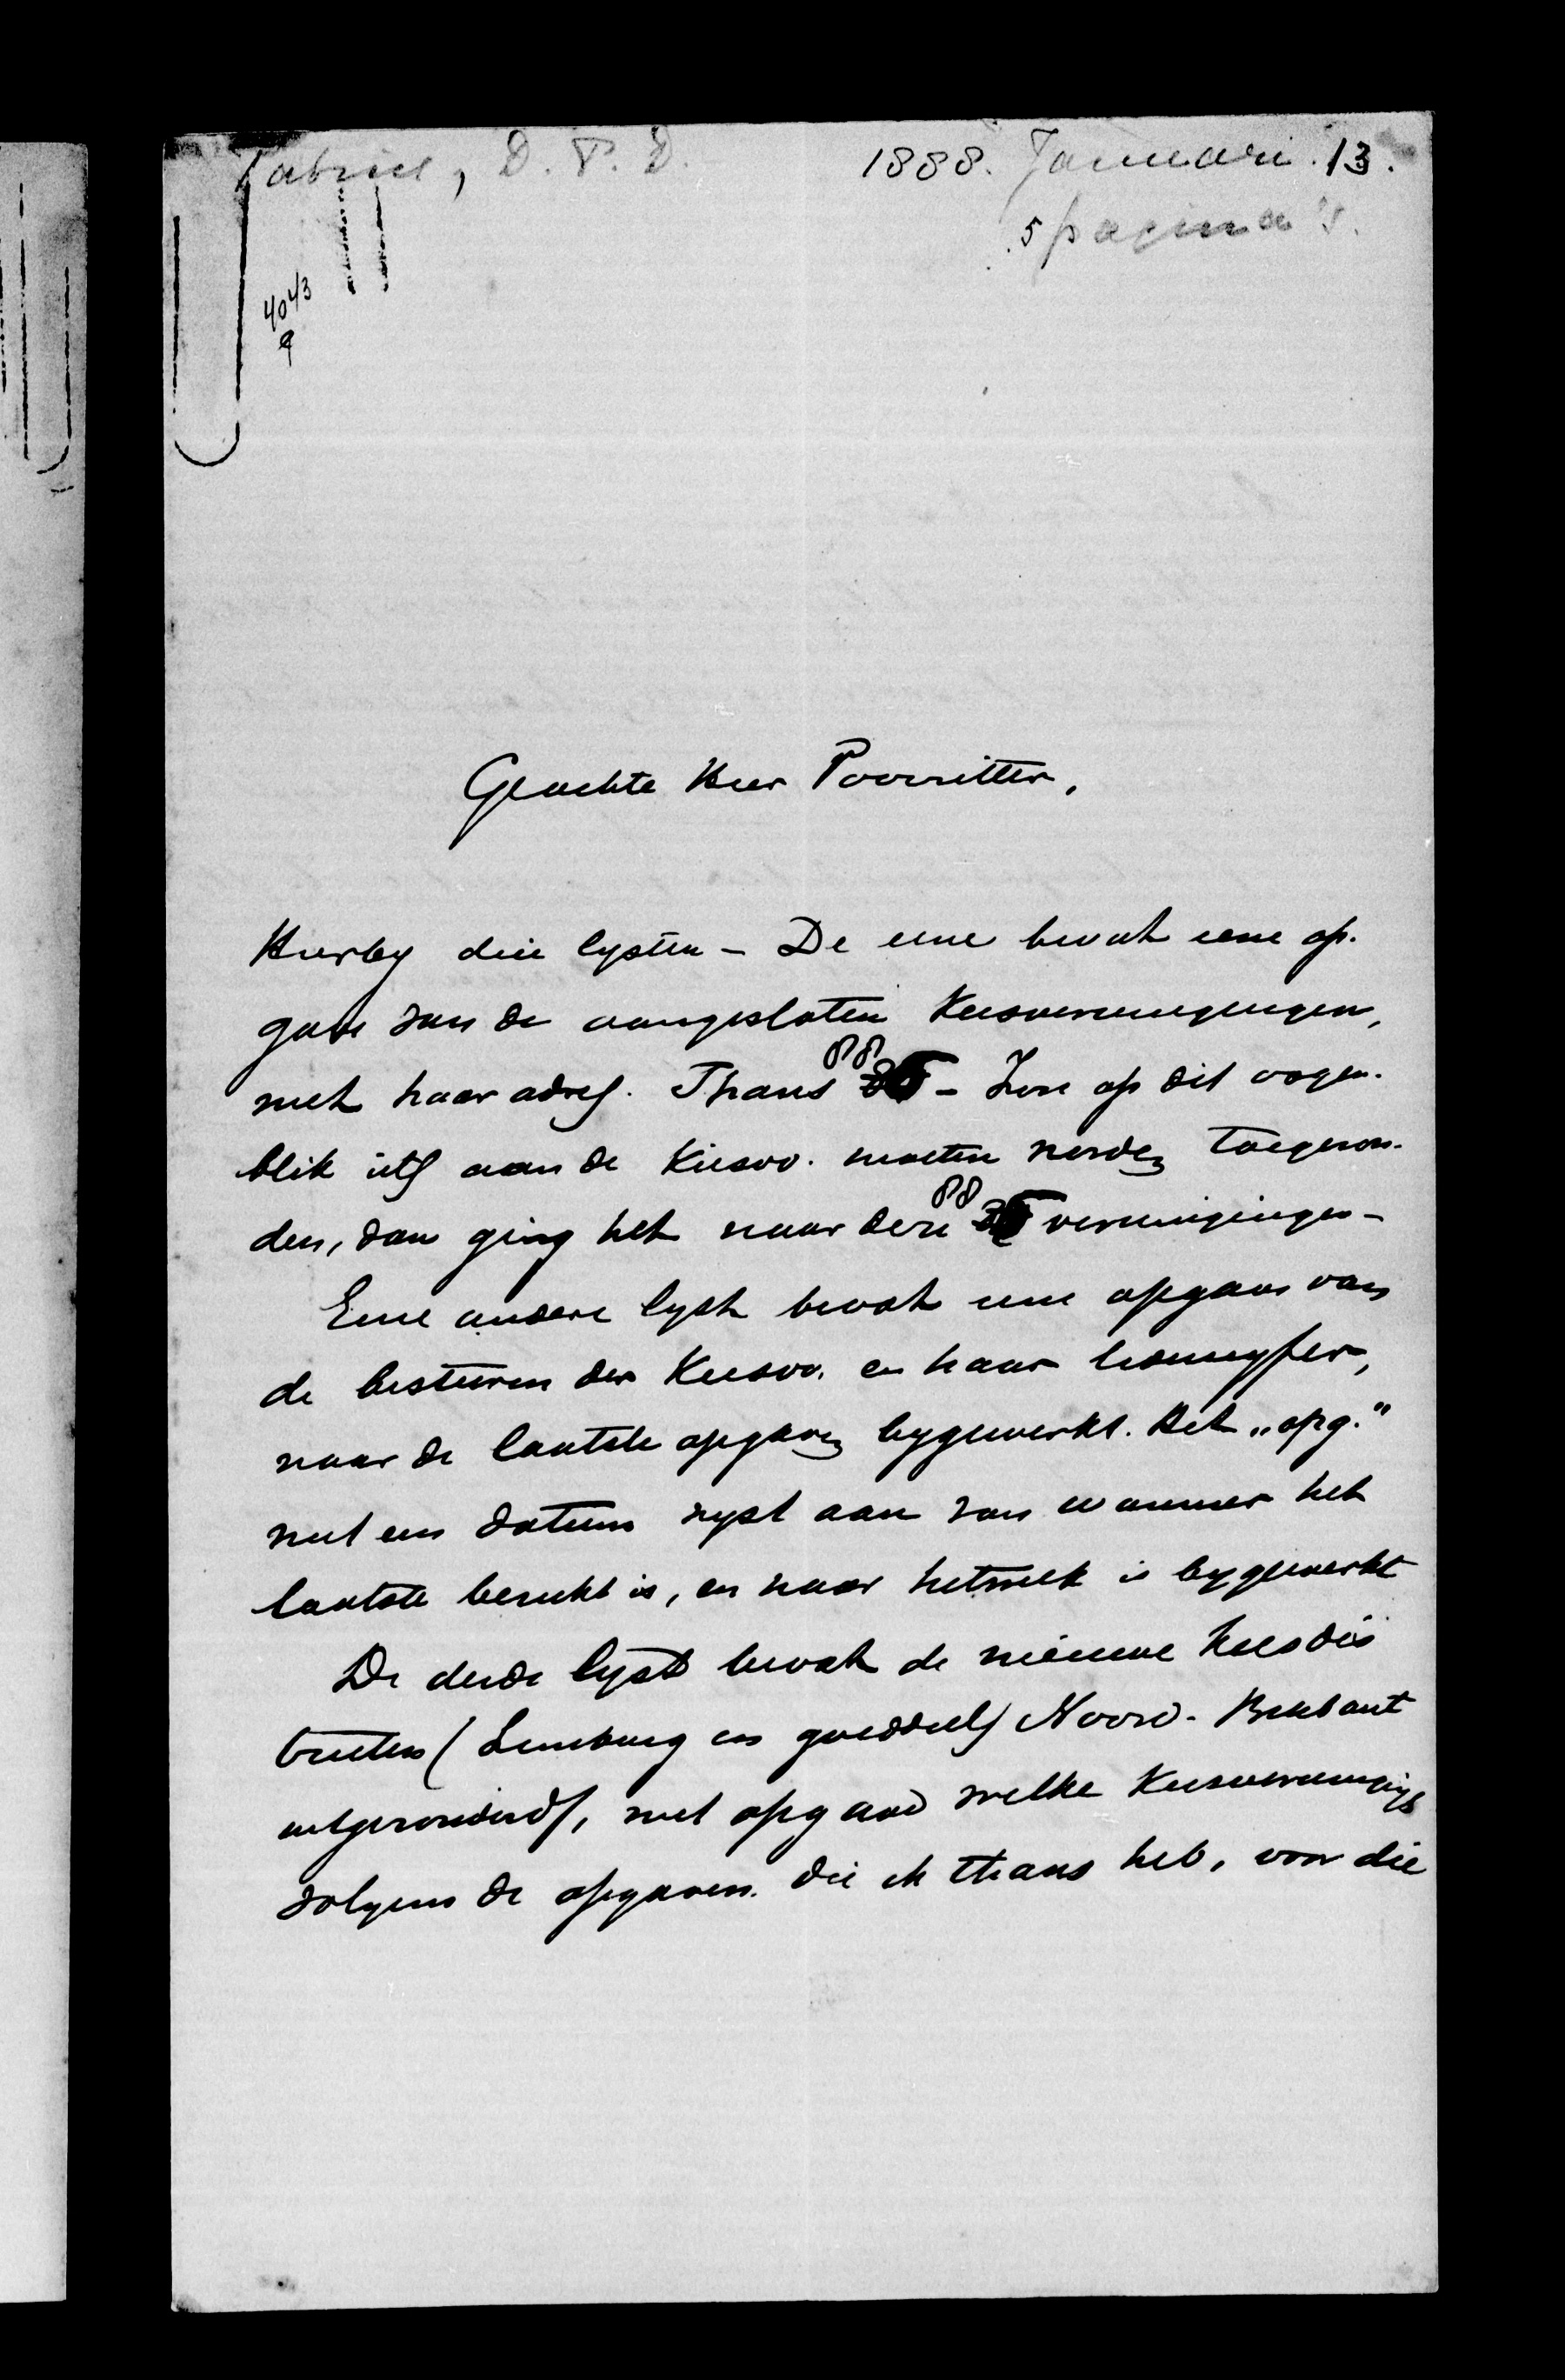 Fabius, D. P. D.
1888. Januari. 13.
5 pagina's.
4043
Geachte Heer Voorzitter,
Hierby drie lysten – De eene bevat eene op-
gave van de aangesloten Kiesvereenigingen,
met haar adres. Thans 88 – Zou op dit oogen-
blik iets aan de Kiesvv. moeten worden toegezon-
den, dan ging het naar deze 88 vereenigingen –
Eene andere lyst bevat eene opgave van
de besturen der Kiesvv. en haar ledencyfer,
naar de laatste opgaven bygewerkt. Het „opg."
met een datum wyst aan van wanneer het
laatste bericht is, en naar hetwelk is bygewerkt
De derde lyst bevat de nieuwe kiesdis
tricten (Limburg en goeddeels Noord-Brabant
uitgezonderd), met opgave welke Kiesvereenigings
volgens de opgaven die ik thans heb, voor die